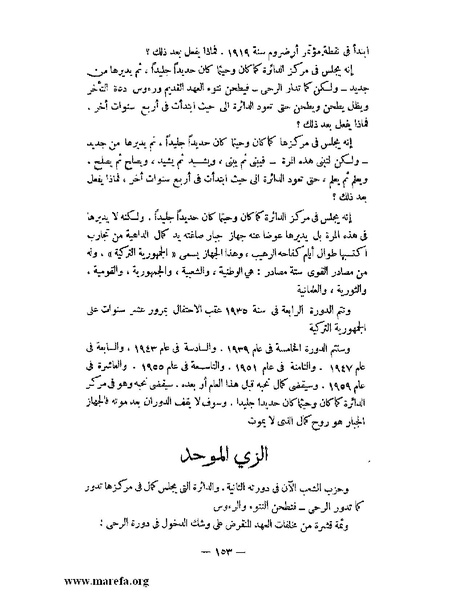 ابتدأ فى نقطة مؤتمر أرضروم سنة ١٩١٩ . فماذا يفعل بعد ذلك ؟
إنه يجلس فى مركز الدائرة كما كان وحيثما كان حديداً جليداً ، ثم يديرها من
جديد – ولكن كما تدار الرحى – فيطحن نتوء العهد القديم ورءوس دعاة التأخر
ويظل يطحن ويطحن حتى تعود الدائرة الى حيث ابتدأت فى أربع سنوات أخر .
فماذا يفعل بعد ذلك ؟
إنه يجلس فى مركزها كما كان وحيثما كان حديداً جليداً ، ثم يديرها من جديد
– ولكن لتبنى هذه المرة – فيبنى ثم يبنى ، ويشيد ثم يشيد ، ويصلح ثم يصلح .
ويعلم ثم يعلم ، حتى تعود الدائرة الى حيث ابتدأت فى أربع سنوات أخر ، فماذا يفعل
بعد ذلك ؟
إنه يجلس فى مركز الدائرة كما كان وحيثما كان حديداً جليداً . ولكنه لا يديرها
فى هذه المرة بل يديرها عوضا عنه جهاز جبار صاغته يد كمال الداهية من تجارب
اكتسبها طوال أيام كفاحه الرهيب ، وهذا الجهاز يسمى « الجمهورية التركية » . وله
من مصادر القوى ستة مصادر : هى الوطنية ، والشعبية ، والجمهورية ، والقومية .
والثورية ، والعلمانية
وتتم الدورة الرابعة فى سنة ١٩٣٥ عقب الاحتفال بمرور عشر سنوات على
الجمهورية التركية
وستتم الدورة الخامسة فى عام ١٩٣٩ . والسادسة فى عام ١٩٤٣ ، والسابعة فى
عام ١٩٤٧ . والثامنة فى عام ١٩٥١ . والتاسعة فى عام ١٩٥٥ . والعاشرة فى
عام ١٩٥٩ . وسيقضى كمال نحبه قبل هذا العام أو بعده . سيقضى نحبه وهو فى مركز
الدائرة كما كان وحيثما كان حديداً جليدا . وسوف لا يقف الدوران بعد موته فالجهاز
الجبار هو روح كمال الذى لا يموت
الزي الموحد
وحزب الشعب الآن فى دورته الثانية . والدائرة التى يجلس كمال فى مركزها تدور
كما تدور الرحى – فتطحن النتوء والرءوس
وثمة قشرة من مخلفات العهد المنقرض على وشك الدخول فى دورة الرحى :
– ١٥٣ –
www.marefa.org